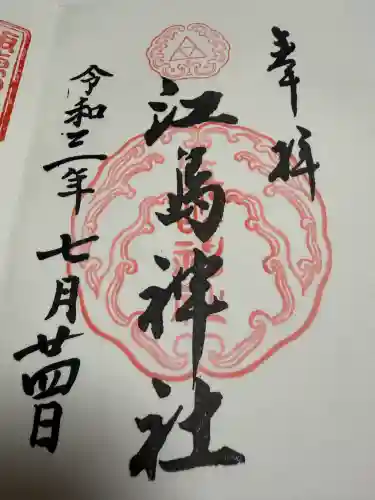 奉拝
江島神社
令和三年
七月廿四日